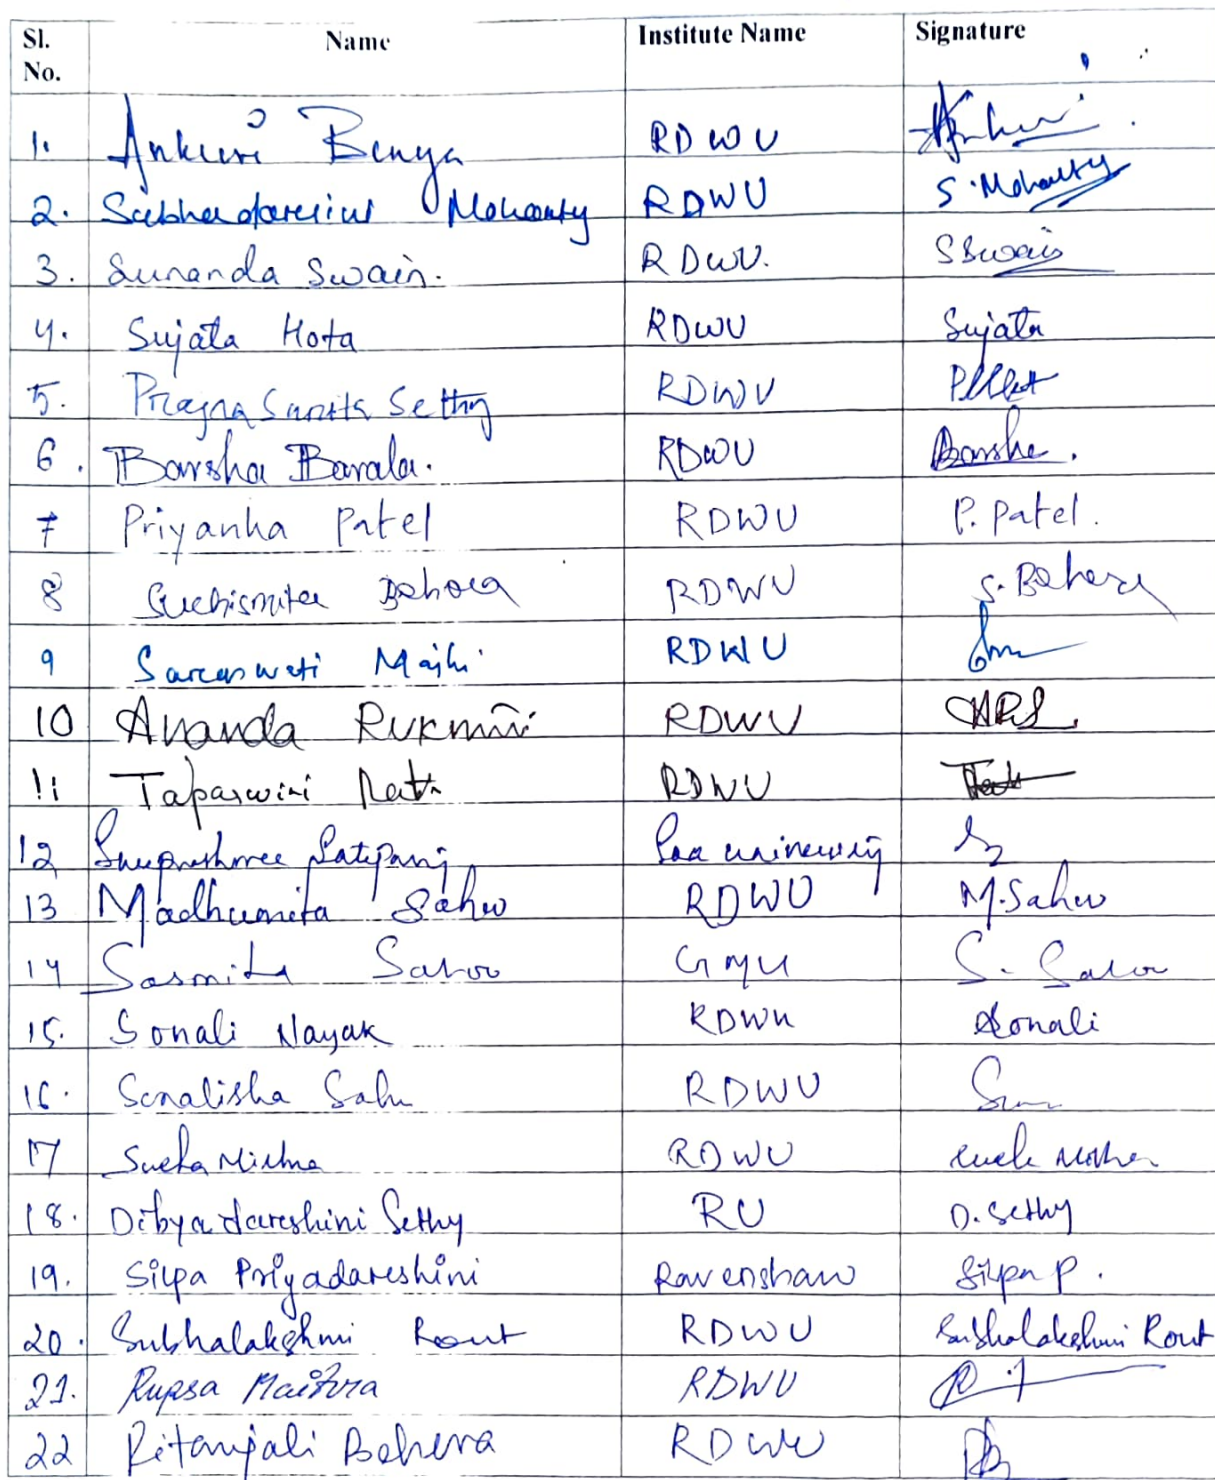 Sl. No. Name Institute Name Signature
1. Ankuri Benya RDWU
2. Subhadarsini Mohanty RDWU S. Mohanty
3. Sunanda Swain. RDWU. S Swain
4. Sujata Hota RDWU Sujata
5. Pragna Sethy RDWU
6. Barsha Barala. RDWU Barsha.
7 Priyanka Patel RDWU P. Patel.
8 Suchismita Behera RDWU S. Behera
9 Saraswati Majhi RDWU
10 Ananda Rukmini RDWU ARS
11 Tapaswini Rath RDWU
12 Satpathy
13 Madhumita Sahoo RDWU M. Sahoo
14 Sasmita Sahoo GMU S. Sahoo
15. Sonali Nayak RDWU Sonali
16. Sonalisha Sahu RDWU
17 Sneha Mishra RDWU
18. Dibyadarshini Sethy RU D. Sethy
19. Silpa Priyadareshini Ravenshaw Silpa P.
20. Subhalakshmi Rout RDWU Subhalakshmi Rout
21. Rupsa Maitra RDWU
22 Ritanjali Behera RDWU